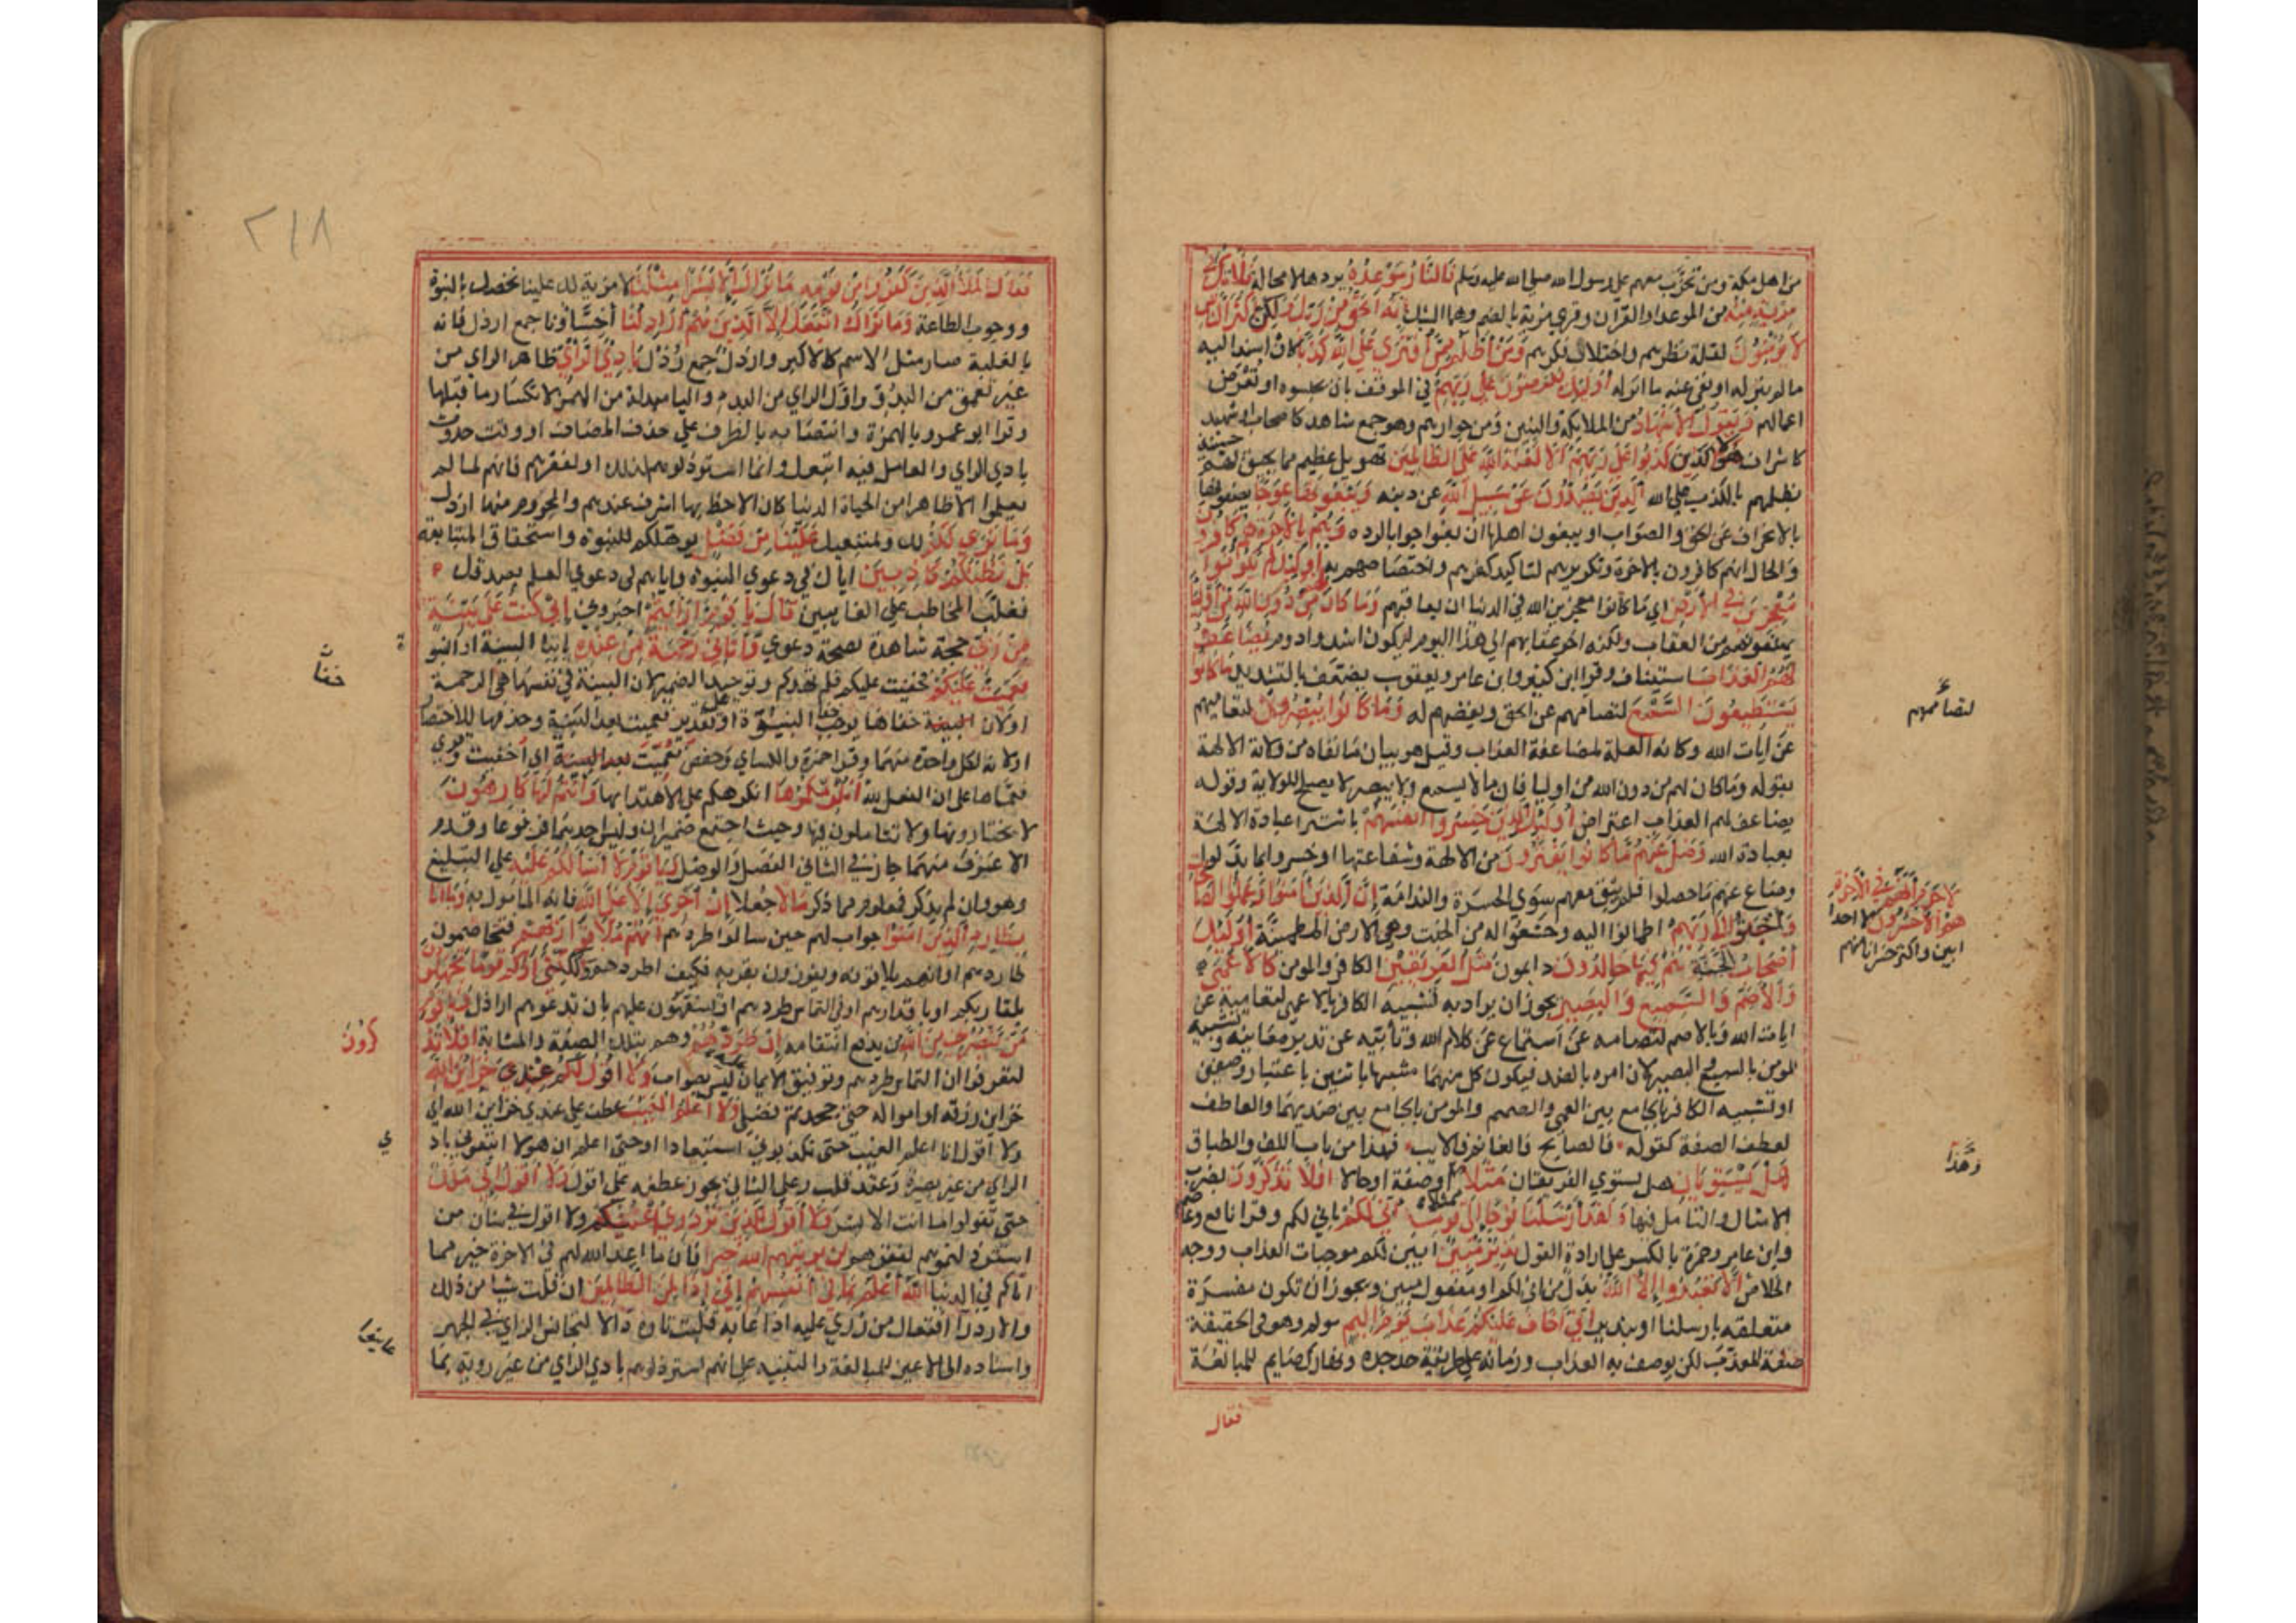 من اهل مكة ومن تحزب معهم على رسول الله صلى الله عليه وسلم فالنار موعده يردها لا محالة فلا تك في
مرية منه من الموعد او القران وقري مرية بالضم وهما الشك انه الحق من ربك ولكن اكثر الناس
لا يؤمنون لقلة نظرهم واختلال فكرهم ومن اظلم ممن افترى على الله كذبا كان اسند اليه
ما لم ينزله او نفى عنه ما انزله اوليك يعرضون على ربهم في الموقف بان يحبسوا وتعرض
اعمالهم ويقول الاشهاد من الملايكة والنبيين ومن جوارحهم وهو جمع شاهد كاصحاب او شهيد
كاشراف هولا الذين كذبوا على ربهم الا لعنة الله على الظالمين تهويل عظيم مما يحيق بهم حينيذ
بظلمهم بالكذب على الله الذين يصدون عن سبيل الله عن دينه ويبغونها عوجا يصفونها
بالانحراف عن الحق والصواب او يبغون اهلها ان يعوجوا بالردة وهم بالاخرة هم كافرون
والحال انهم كافرون بالاخرة وتكريرهم لتاكيد كفرهم واختصاصهم به اوليك لم يكونوا
معجزين في الارض اي ما كانوا معجزين الله في الدنيا ان يعاقبهم وما كان لهم من دون الله من اوليا
يمنعونهم من العقاب ولكنه اخر عقابهم الى هذا اليوم ليكون اشد وادوم يضاعف
لهم العذاب استيناف وقرا ابن كثير وابن عامر ويعقوب يضعف بالتشديد ما كانوا
يستطيعون السمع لتصامهم عن الحق وبغضهم له وما كانوا يبصرون لتعاميهم
عن ايات الله وكانه العلة لمضاعفة العذاب وقيل هو بيان ما نفاه من ولاية الالهة
بقوله وما كان لهم من دون الله من اوليا فان ما لا يسمع ولا يبصر لا يصلح للولاية وقوله
يضاعف لهم العذاب اعتراض اوليك الذين خسروا انفسهم باشترا عبادة الالهة
بعبادة الله وضل عنهم ما كانوا يفترون من الالهة وشفاعتها او خسروا بما بدلوا
وضاع عنهم ما حصلوا فلم يبق معهم سوى الحسرة والندامة ان الذين امنوا وعملوا الصالحات
واخبتوا الى ربهم اطمانوا اليه وخشعوا له من الخبت وهي الارض المطمئنة اوليك
اصحاب الجنة هم فيها خالدون دايمون مثل الفريقين الكافر والمومن كالاعمى
والاصم والسميع والبصير يجوز ان يراد به تشبيه الكافر بالاعمى لتعاميه عن
ايات الله وبالاصم لتصامه عن استماع عن كلام الله وتابيه عن تدبر معانيه وتشبيه
المومن بالسميع والبصير لان امره بالضد فيكون كل منهما مشبها باثنين باعتبار وصفين
او تشبيه الكافر بالجامع بين العمى والصمم والمومن بالجامع بين ضديهما والعاطف
لعطف الصفة كقوله فالصابح فالغانم فالايب فهذا من باب اللف والطباق
هل يستويان هل يستوي الفريقان مثلا اي تمثيلا او صفة او حالا افلا تذكرون بضرب
الامثال والتامل فيها ولقد ارسلنا نوحا الى قومه اني لكم باني لكم وقرا نافع وعاصم
وابن عامر وحمزة بالكسر على ارادة القول نذير مبين ابين لكم موجبات العذاب ووجه
الخلاص الا تعبدوا الا الله بدل من اني لكم او مفعول مبين ويجوز ان تكون مفسرة
متعلقة بارسلنا او بنذير اني اخاف عليكم عذاب يوم اليم مولم وهو في الحقيقة
صفة المعذب لكن يوصف به العذاب وزمانه على طريقة جد جده ونهارك صايم للمبالغة
فقال
لتصاممهم
لا جرم انهم في الاخرة
هم الاخسرون لا احد
ابين واكثر خسرانا منهم
وهذا
٢١٨
فقال الملا الذين كفروا من قومه ما نراك الا بشرا مثلنا لا مزية لك علينا تخصك بالنبوة
ووجوب الطاعة وما نراك اتبعك الا الذين هم اراذلنا اخساونا جمع ارذل فانه
بالغلبة صار مثل الاسم كالاكبر وارذل جمع رذل بادي الراي ظاهر الراي من
غير تعمق من البدو واول الراي من البدء واليا مبدلة من الهمزة لانكسار ما قبلها
وقرا ابو عمرو بالهمزة وانتصابه بالظرف على حذف المضاف او وقت حدوث
بادي الراي والعامل فيه اتبعك وانما استرذلوهم لذلك او لفقرهم فانهم لما لم
يعلموا الا ظاهرا من الحياة الدنيا كان الاحظ بها اشرف عندهم والمحروم منها ارذل
وما نرى لكم لك ولمتبعيك علينا من فضل يوهلكم للنبوة واستحقاق المتابعة
بل نظنكم كاذبين اياك في دعوي النبوة واياهم في دعوي العلم بصدقك
فغلب المخاطب على الغايبين قال يا قوم ارايتم اخبروني ان كنت على بينة
من ربي حجة شاهدة بصحة دعوي واتاني رحمة من عنده بايتا البينة او النبوة
فعميت عليكم فخفيت عليكم فلم تهدكم وتوحيد الضمير لان البينة في نفسها هي الرحمة
او لان خفاها يوجب خفا النبوة او على تقدير فعميت بعد البينة وحذفها للاختصار
او لانه لكل واحدة منهما وقرا حمزة والكساي وحفص فعميت بعد البينة اي اخفيت وقري
فعماها على ان الفعل لله انلزمكموها انكرهكم على الاهتدا بها وانتم لها كارهون
لا تختارونها ولا تتاملون فيها وحيث اجتمع ضميران وليس احدهما مرفوعا وقدم
الاعرف منهما جاز في الثاني الفصل والوصل ويا قوم لا اسالكم عليه على التبليغ
وهو وان لم يذكر فمعلوم مما ذكر مالا جعلا ان اجري الا على الله فانه المامول به وما انا
بطارد الذين امنوا جواب لهم حين سالوا طردهم انهم ملاقوا ربهم فيخاصمون
طاردهم او انهم يلاقونه ويفوزون بقربه فكيف اطردهم ولكني اراكم قوما تجهلون
بلقا ربكم او باقدارهم او في التماس طردهم او تسفهون عليهم بان تدعوهم اراذل ويا قوم
من ينصرني من الله يدفع انتقامه ان طردتهم وهم بتلك الصفة والمثابة افلا تذ
لتعرفوا ان التماس طردهم وتوفيق الايمان عليه ليس بصواب ولا اقول لكم عندي خزاين الله
خزاين رزقه او امواله حتى جحدتم فضلي ولا اعلم الغيب عطف على عندي خزاين الله اي
ولا اقول انا اعلم الغيب حتى تكذبوني استبعادا او حتى اعلم ان هولا اتبعوني باد
الراي من غير بصيرة وعقد قلب وعلى الثاني يجوز عطفه على اقول ولا اقول اني ملك
حتى تقولوا ما انت الا بشر ولا اقول للذين تزدري اعينكم ولا اقول في شان من
استرذلتموهم لفقرهم لن يوتيهم الله خيرا فان ما اعد الله لهم في الاخرة خير مما
اتاكم في الدنيا الله اعلم بما في انفسهم اني اذا لمن الظالمين ان قلت شيا من ذلك
والازدرا افتعال من زري عليه اذا عابه قلبت تاوه دالا لتجانس الراي في الجهر
واسناده الى الاعين للمبالغة والتنبيه على انهم استرذلوهم بادي الراي من غير روية بما
ة
خفا
كرون
ي
عاينوا